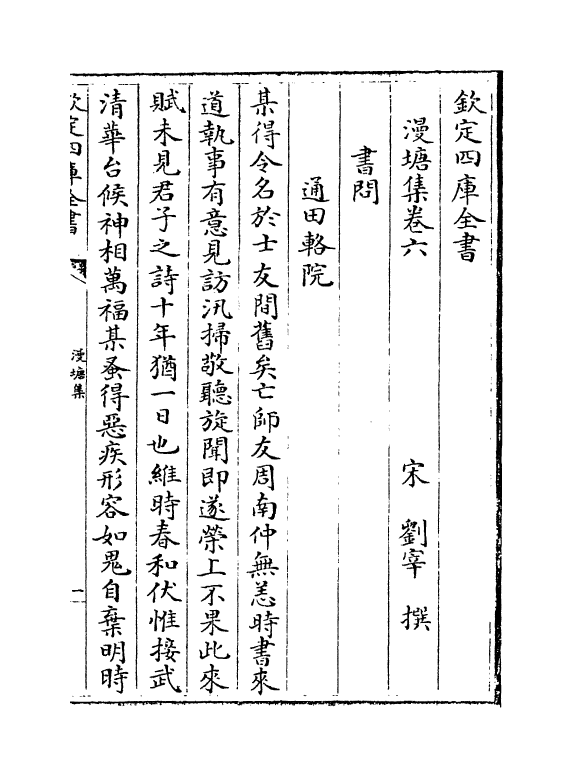 欽定四庫全書
漫塘集卷六
宋 劉宰 撰
書問
通田輅院
某得令名於士友間舊矣亡師友周南仲無恙時書來
道執事有意見訪汛掃敬聽旋聞即遂榮上不果此來
賦未見君子之詩十年猶一日也維時春和伏惟接武
清華台候神相萬福某蚤得惡疾形容如鬼自棄明時
欽定四庫全書
漫塘集
一